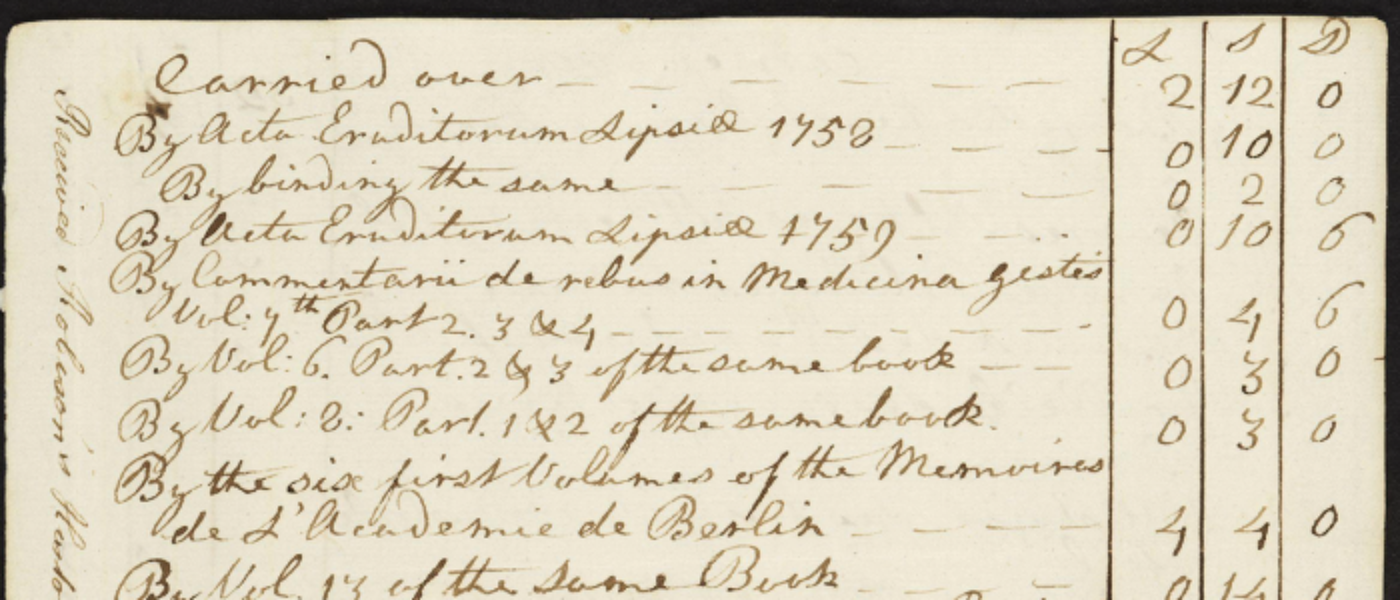 £ S D
Carried over - - - - - 2 12 0
By Acta Eruditorum Lipsiæ 1758 - - - - 0 10 0
By binding the same - - - - - 0 2 0
By Acta Eruditorum Lipsiæ 1759 - - - 0 10 6
By Commentarii de rebus in Medicina gestis
Vol: 7th Part 2. 3 & 4 - - - - - - - - 0 4 6
By Vol: 6. Part. 2 & 3 of the same book - - 0 3 0
By Vol: 8: Part. 1 & 2 of the same book. 0 3 0
By the six first Volumes of the Memoires
de L'Academie de Berlin - - - - 4 4 0
By Vol 13 of the same Book - - - 0 14 0
Received Robson's